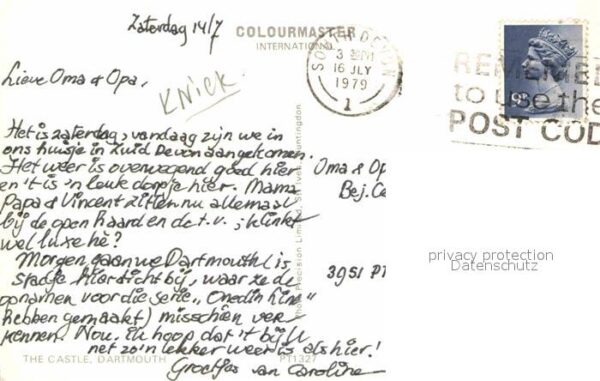 Zaterdag 14/7
COLOURMASTER
INTERNATIONAL
Lieve Oma & Opa,
KNICK
Het is zaterdag, vandaag zijn we in
ons huisje in Zuid Devon aangekomen.
Het weer is overwegend goed hier
en 't is 'n leuk dorpje hier. Mama
Papa & Vincent zitten nu allemaal
bij de open haard en de t.v. ; klinkt
wel luxe hè?
Morgen gaan we Dartmouth (is
stadje hier dicht bij, waar ze de
opnamen voor die serie „Onedin Line"
hebben gemaakt) misschien ver
kennen. Nou, ik hoop dat 't bij U
net zo'n lekker weer is als hier!
Groetjes van Caroline
THE CASTLE, DARTMOUTH
PT1327
Photo Precision Limited, St. Ives, Huntingdon
SOUTH DEVON
3 PM
16 JLY
1979
1
REMEMBE
to use the
POST COD
Oma & Op
Bej. Ce
3951 PT
privacy protection
Datenschutz